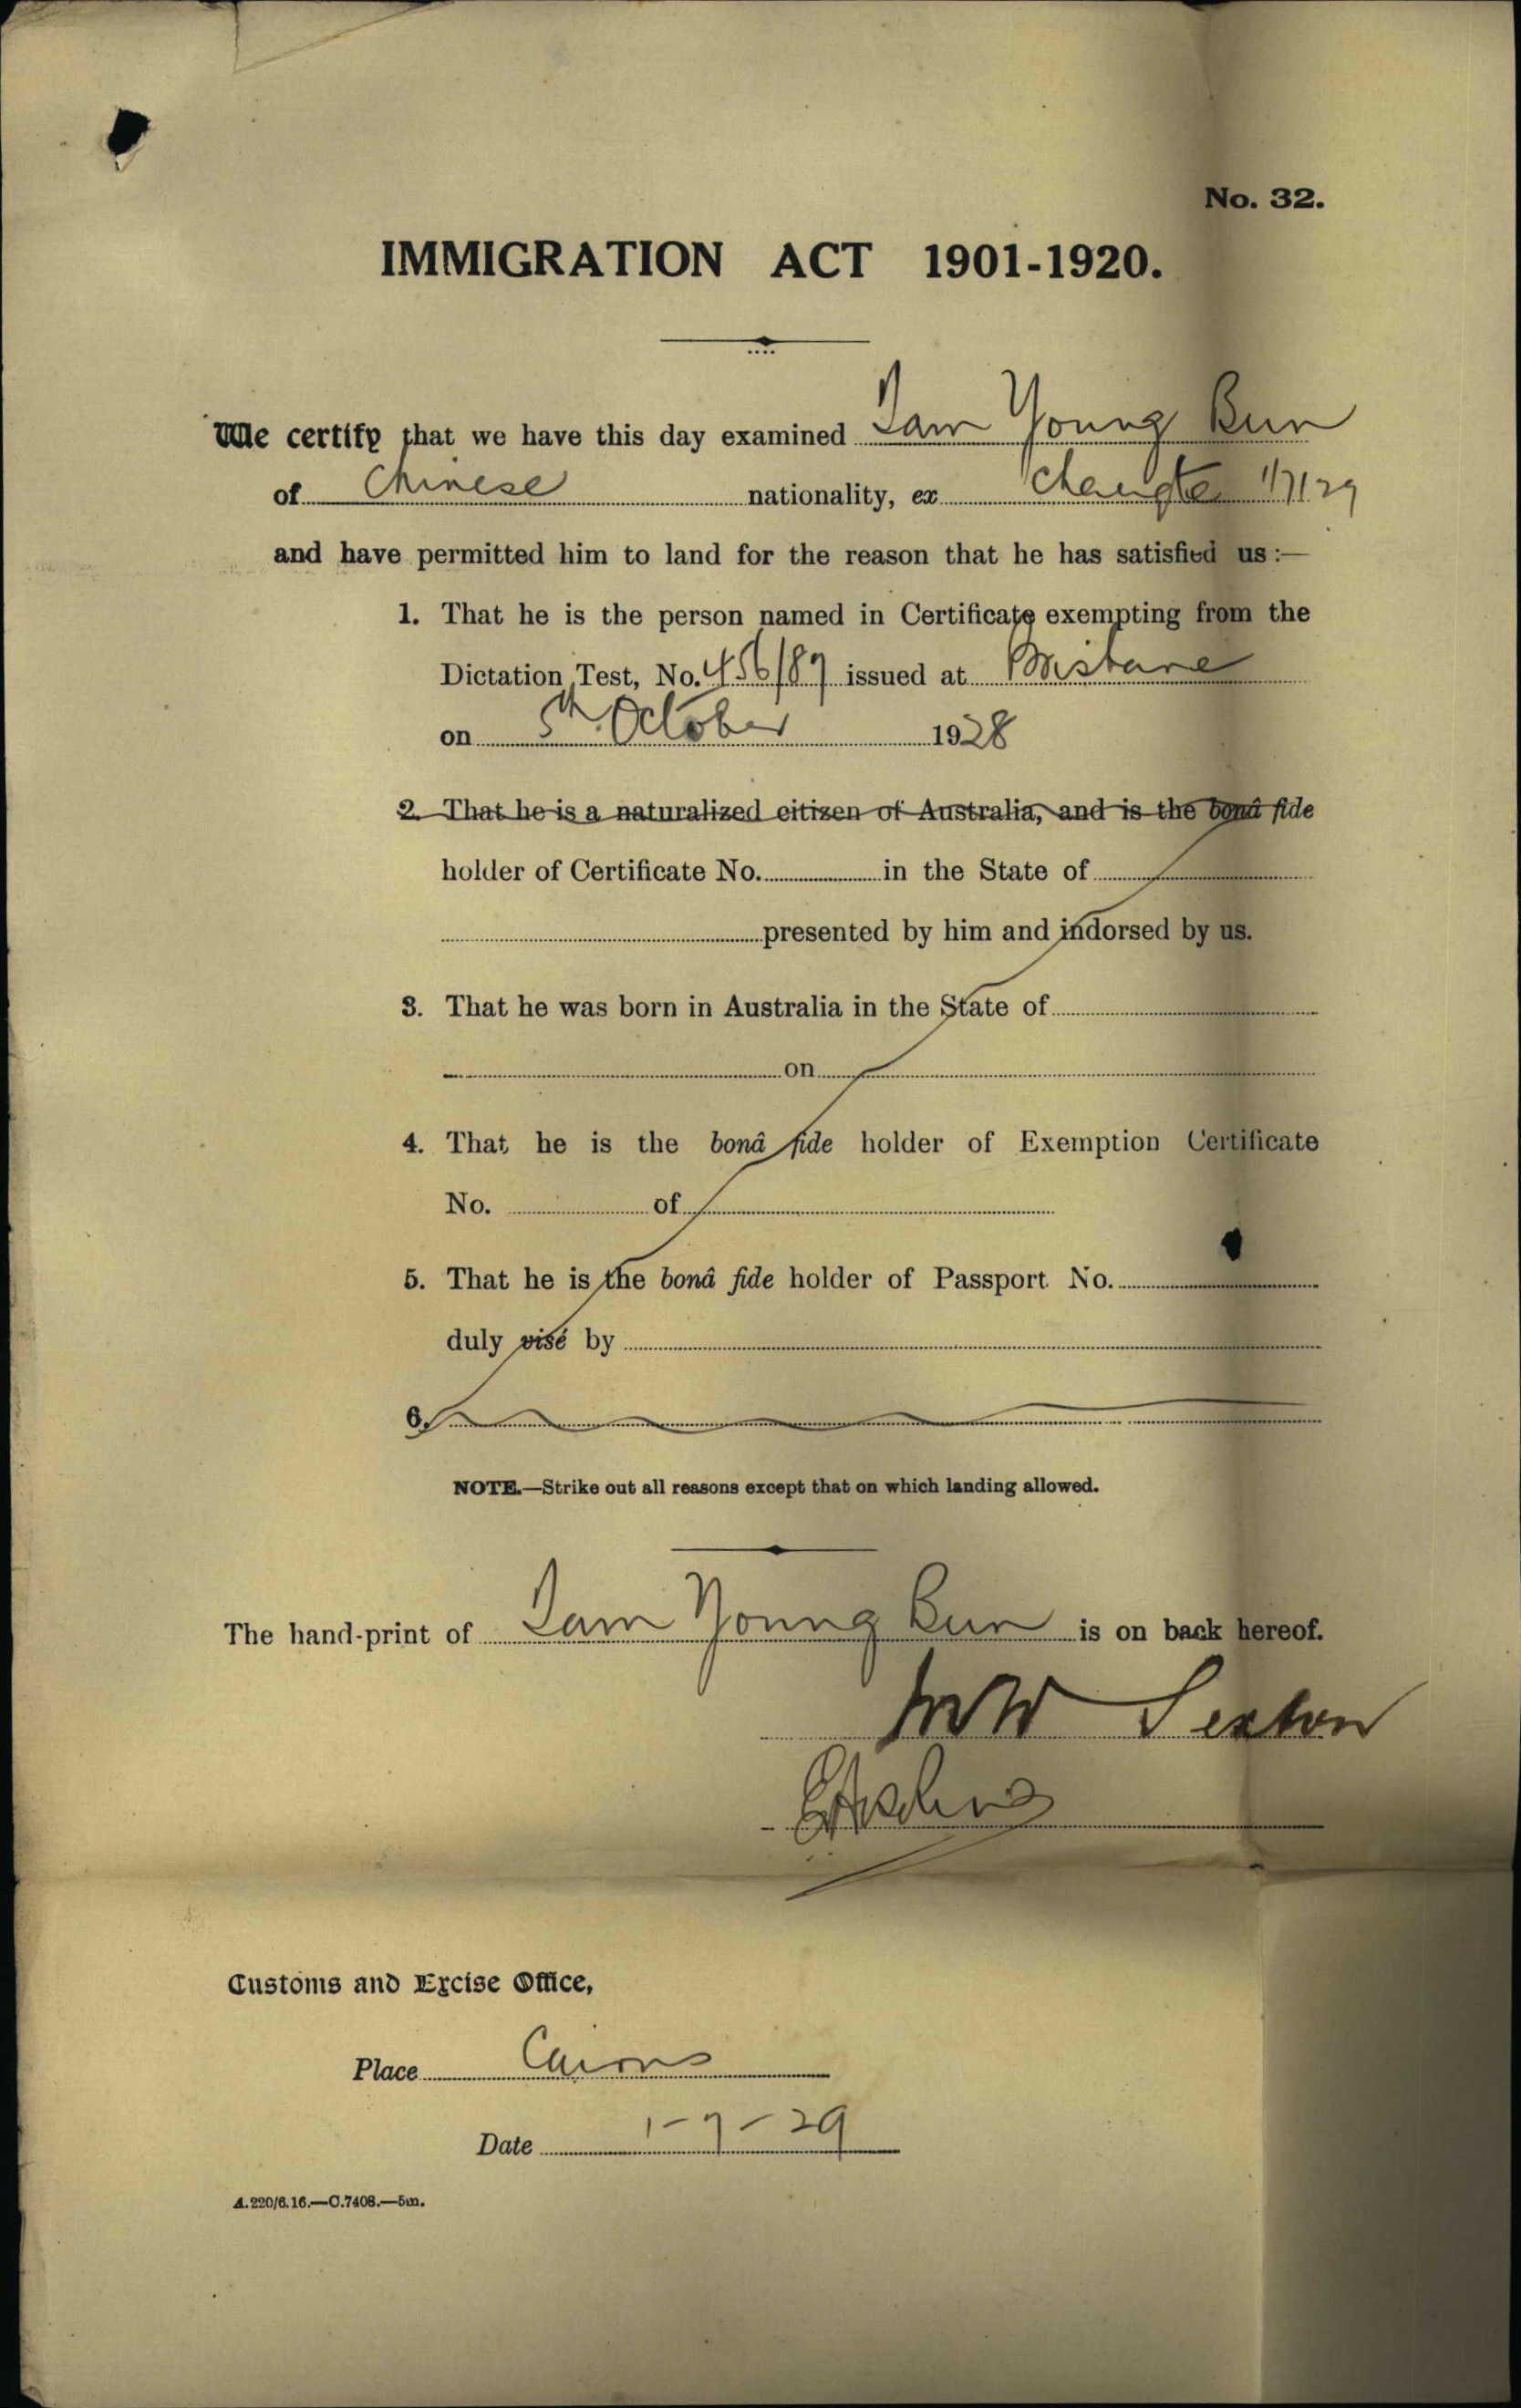 No. 32.
IMMIGRATION ACT 1901-1920.
We certify that we have this day examined Tam Young Bun
of Chinese nationality, ex Changte 1/7/29
and have permitted him to land for the reason that he has satisfied us:—
1. That he is the person named in Certificate exempting from the
Dictation Test, No. 456/87 issued at Brisbane
on 5th October 1928
2. That he is a naturalized citizen of Australia, and is the bonâ fide
holder of Certificate No. in the State of
presented by him and indorsed by us.
3. That he was born in Australia in the State of
on
4. That he is the bonâ fide holder of Exemption Certificate
No. of
5. That he is the bonâ fide holder of Passport No.
duly visé by
6.
NOTE.—Strike out all reasons except that on which landing allowed.
The hand-print of Tam Young Bun is on back hereof.
MW Sexton
Customs and Excise Office,
Place Cairns
Date 1-7-29
A.220/6.16.—C.7408.—5m.